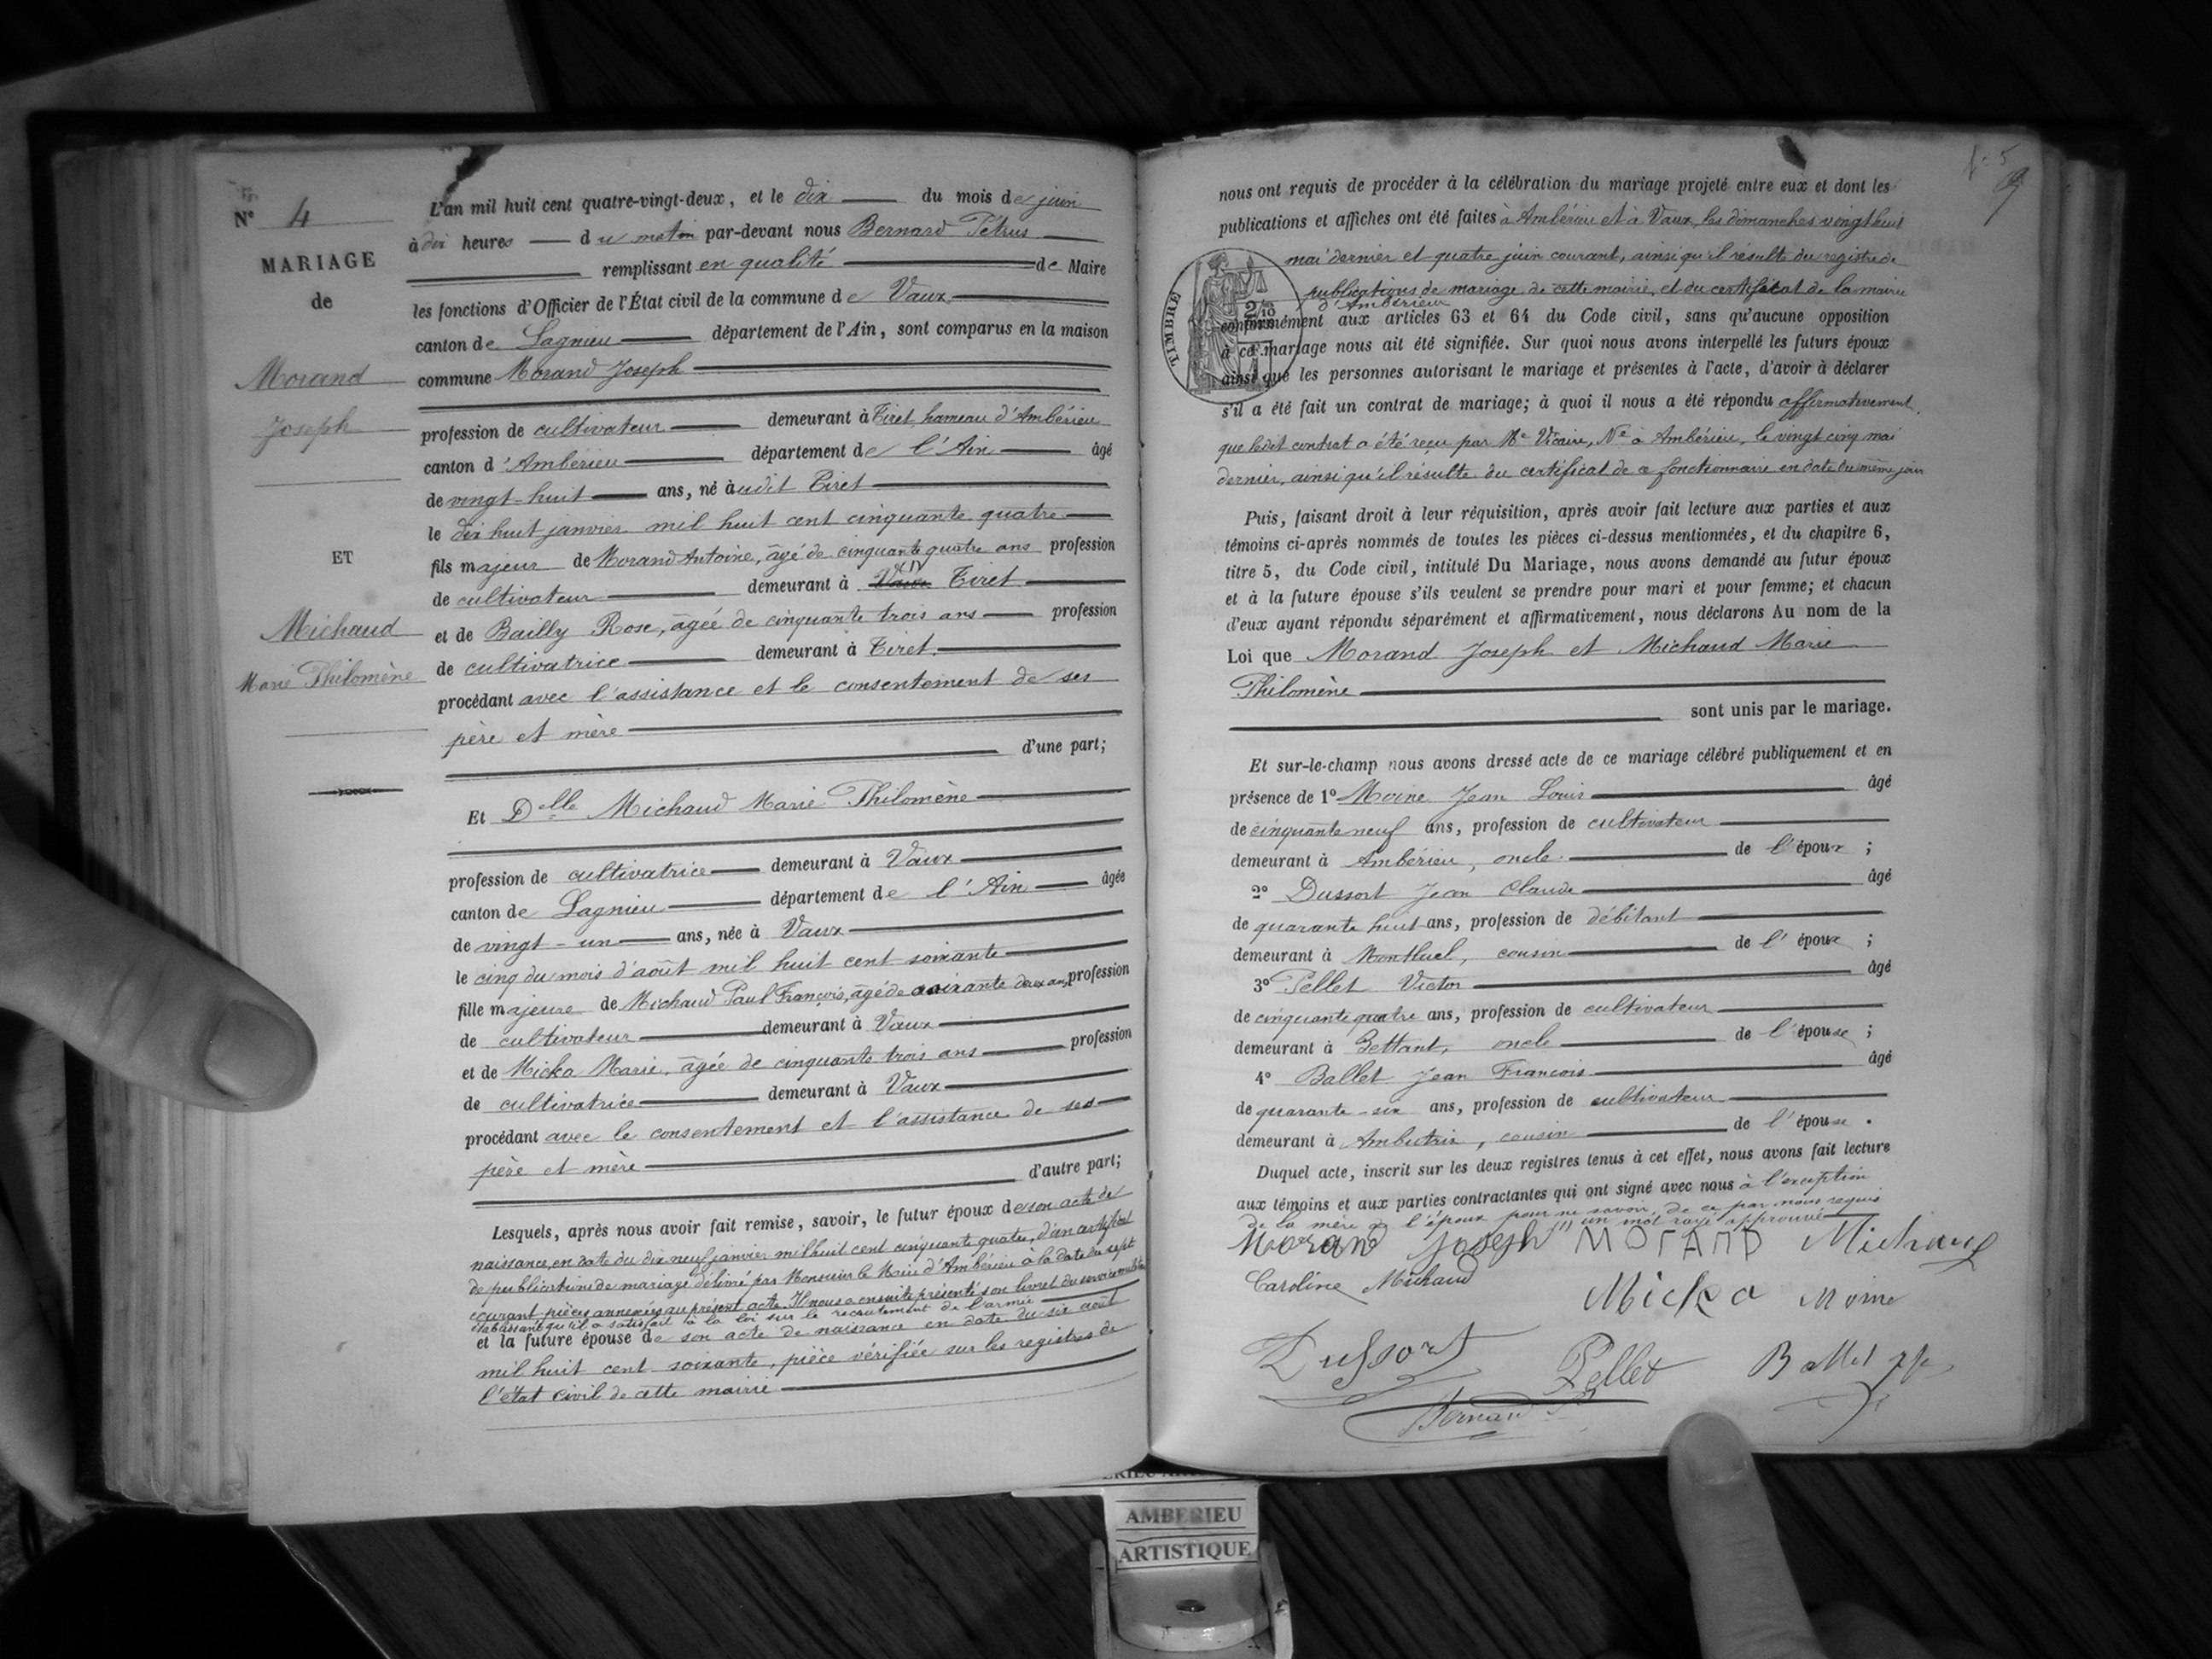 N° 4
MARIAGE
de
Morand
Joseph
ET
Michaud
Marie Philomène
L'an mil huit cent quatre-vingt-deux, et le dix du mois de juin
à dix heures du matin par-devant nous Bernard Petrus
remplissant en qualité de Maire
les fonctions d'Officier de l'État civil de la commune de Vaux
canton de Lagnieu département de l'Ain, sont comparus en la maison
commune Morand Joseph
profession de cultivateur demeurant à Tiret, hameau d'Ambérieu
canton d'Ambérieu département de l'Ain âgé
de vingt-huit ans, né audit Tiret
le dix huit janvier mil huit cent cinquante quatre
fils majeur de Morand Antoine, âgé de cinquante quatre ans profession
de cultivateur demeurant à Vaux (1) Tiret
et de Bailly Rose, âgée de cinquante trois ans profession
de cultivatrice demeurant à Tiret.
procédant avec l'assistance et le consentement de ses
père et mère
d'une part;
Et Delle Michaud Marie Philomène
profession de cultivatrice demeurant à Vaux
canton de Lagnieu département de l'Ain âgée
de vingt-un ans, née à Vaux
le cinq du mois d'août mil huit cent soixante
fille majeure de Michaud Paul François, âgé de soixante deux ans, profession
de cultivateur demeurant à Vaux
et de Micka Marie, âgée de cinquante trois ans profession
de cultivatrice demeurant à Vaux
procédant avec le consentement et l'assistance de ses
père et mère
d'autre part;
Lesquels, après nous avoir fait remise, savoir, le futur époux de son acte de
naissance, en date du dix neuf janvier mil huit cent cinquante quatre, d'un certificat
de publications de mariage délivré par Monsieur le Maire d'Ambérieu à la date du sept
courant, pièces annexées au présent acte. Il nous a ensuite présenté son livret du service militaire
établissant qu'il a satisfait à la loi sur le recrutement de l'armée
et la future épouse de son acte de naissance en date du six août
mil huit cent soixante, pièce vérifiée sur les registres de
l'état civil de cette mairie
f. 5
nous ont requis de procéder à la célébration du mariage projeté entre eux et dont les
publications et affiches ont été faites à Ambérieu et à Vaux, les dimanches vingt huit
mai dernier et quatre juin courant, ainsi qu'il résulte du registre de
publications de mariage de cette mairie, et du certificat de la mairie
d'Ambérieu
TIMBRE
2/10
conformément aux articles 63 et 64 du Code civil, sans qu'aucune opposition
à ce mariage nous ait été signifiée. Sur quoi nous avons interpellé les futurs époux
ainsi que les personnes autorisant le mariage et présentes à l'acte, d'avoir à déclarer
s'il a été fait un contrat de mariage; à quoi il nous a été répondu affirmativement,
que ledit contrat a été reçu par Me Vicaire, Ne à Ambérieu, le vingt cinq mai
dernier, ainsi qu'il résulte du certificat de ce fonctionnaire en date du même jour
Puis, faisant droit à leur réquisition, après avoir fait lecture aux parties et aux
témoins ci-après nommés de toutes les pièces ci-dessus mentionnées, et du chapitre 6,
titre 5, du Code civil, intitulé Du Mariage, nous avons demandé au futur époux
et à la future épouse s'ils veulent se prendre pour mari et pour femme; et chacun
d'eux ayant répondu séparément et affirmativement, nous déclarons Au nom de la
Loi que Morand Joseph et Michaud Marie
Philomène
sont unis par le mariage.
Et sur-le-champ nous avons dressé acte de ce mariage célébré publiquement et en
présence de 1° Moine Jean Louis âgé
de cinquante neuf ans, profession de cultivateur
demeurant à Ambérieu, oncle de l'époux ;
2° Dussort Jean Claude âgé
de quarante huit ans, profession de débitant
demeurant à Montluel, cousin de l'époux ;
3° Pellet Victor âgé
de cinquante quatre ans, profession de cultivateur
demeurant à Bettant, oncle de l'épouse ;
4° Ballet Jean François âgé
de quarante-six ans, profession de cultivateur
demeurant à Ambutrix, cousin de l'épouse.
Duquel acte, inscrit sur les deux registres tenus à cet effet, nous avons fait lecture
aux témoins et aux parties contractantes qui ont signé avec nous à l'exception
de la mère de l'époux pour ne savoir, de ce par nous requis
(1) un mot rayé approuvé
Morand Joseph MORAND Michaud
Caroline Michaud Micka Moine
Dussort Pellet Ballet
Bernard
AMBERIEU
ARTISTIQUE